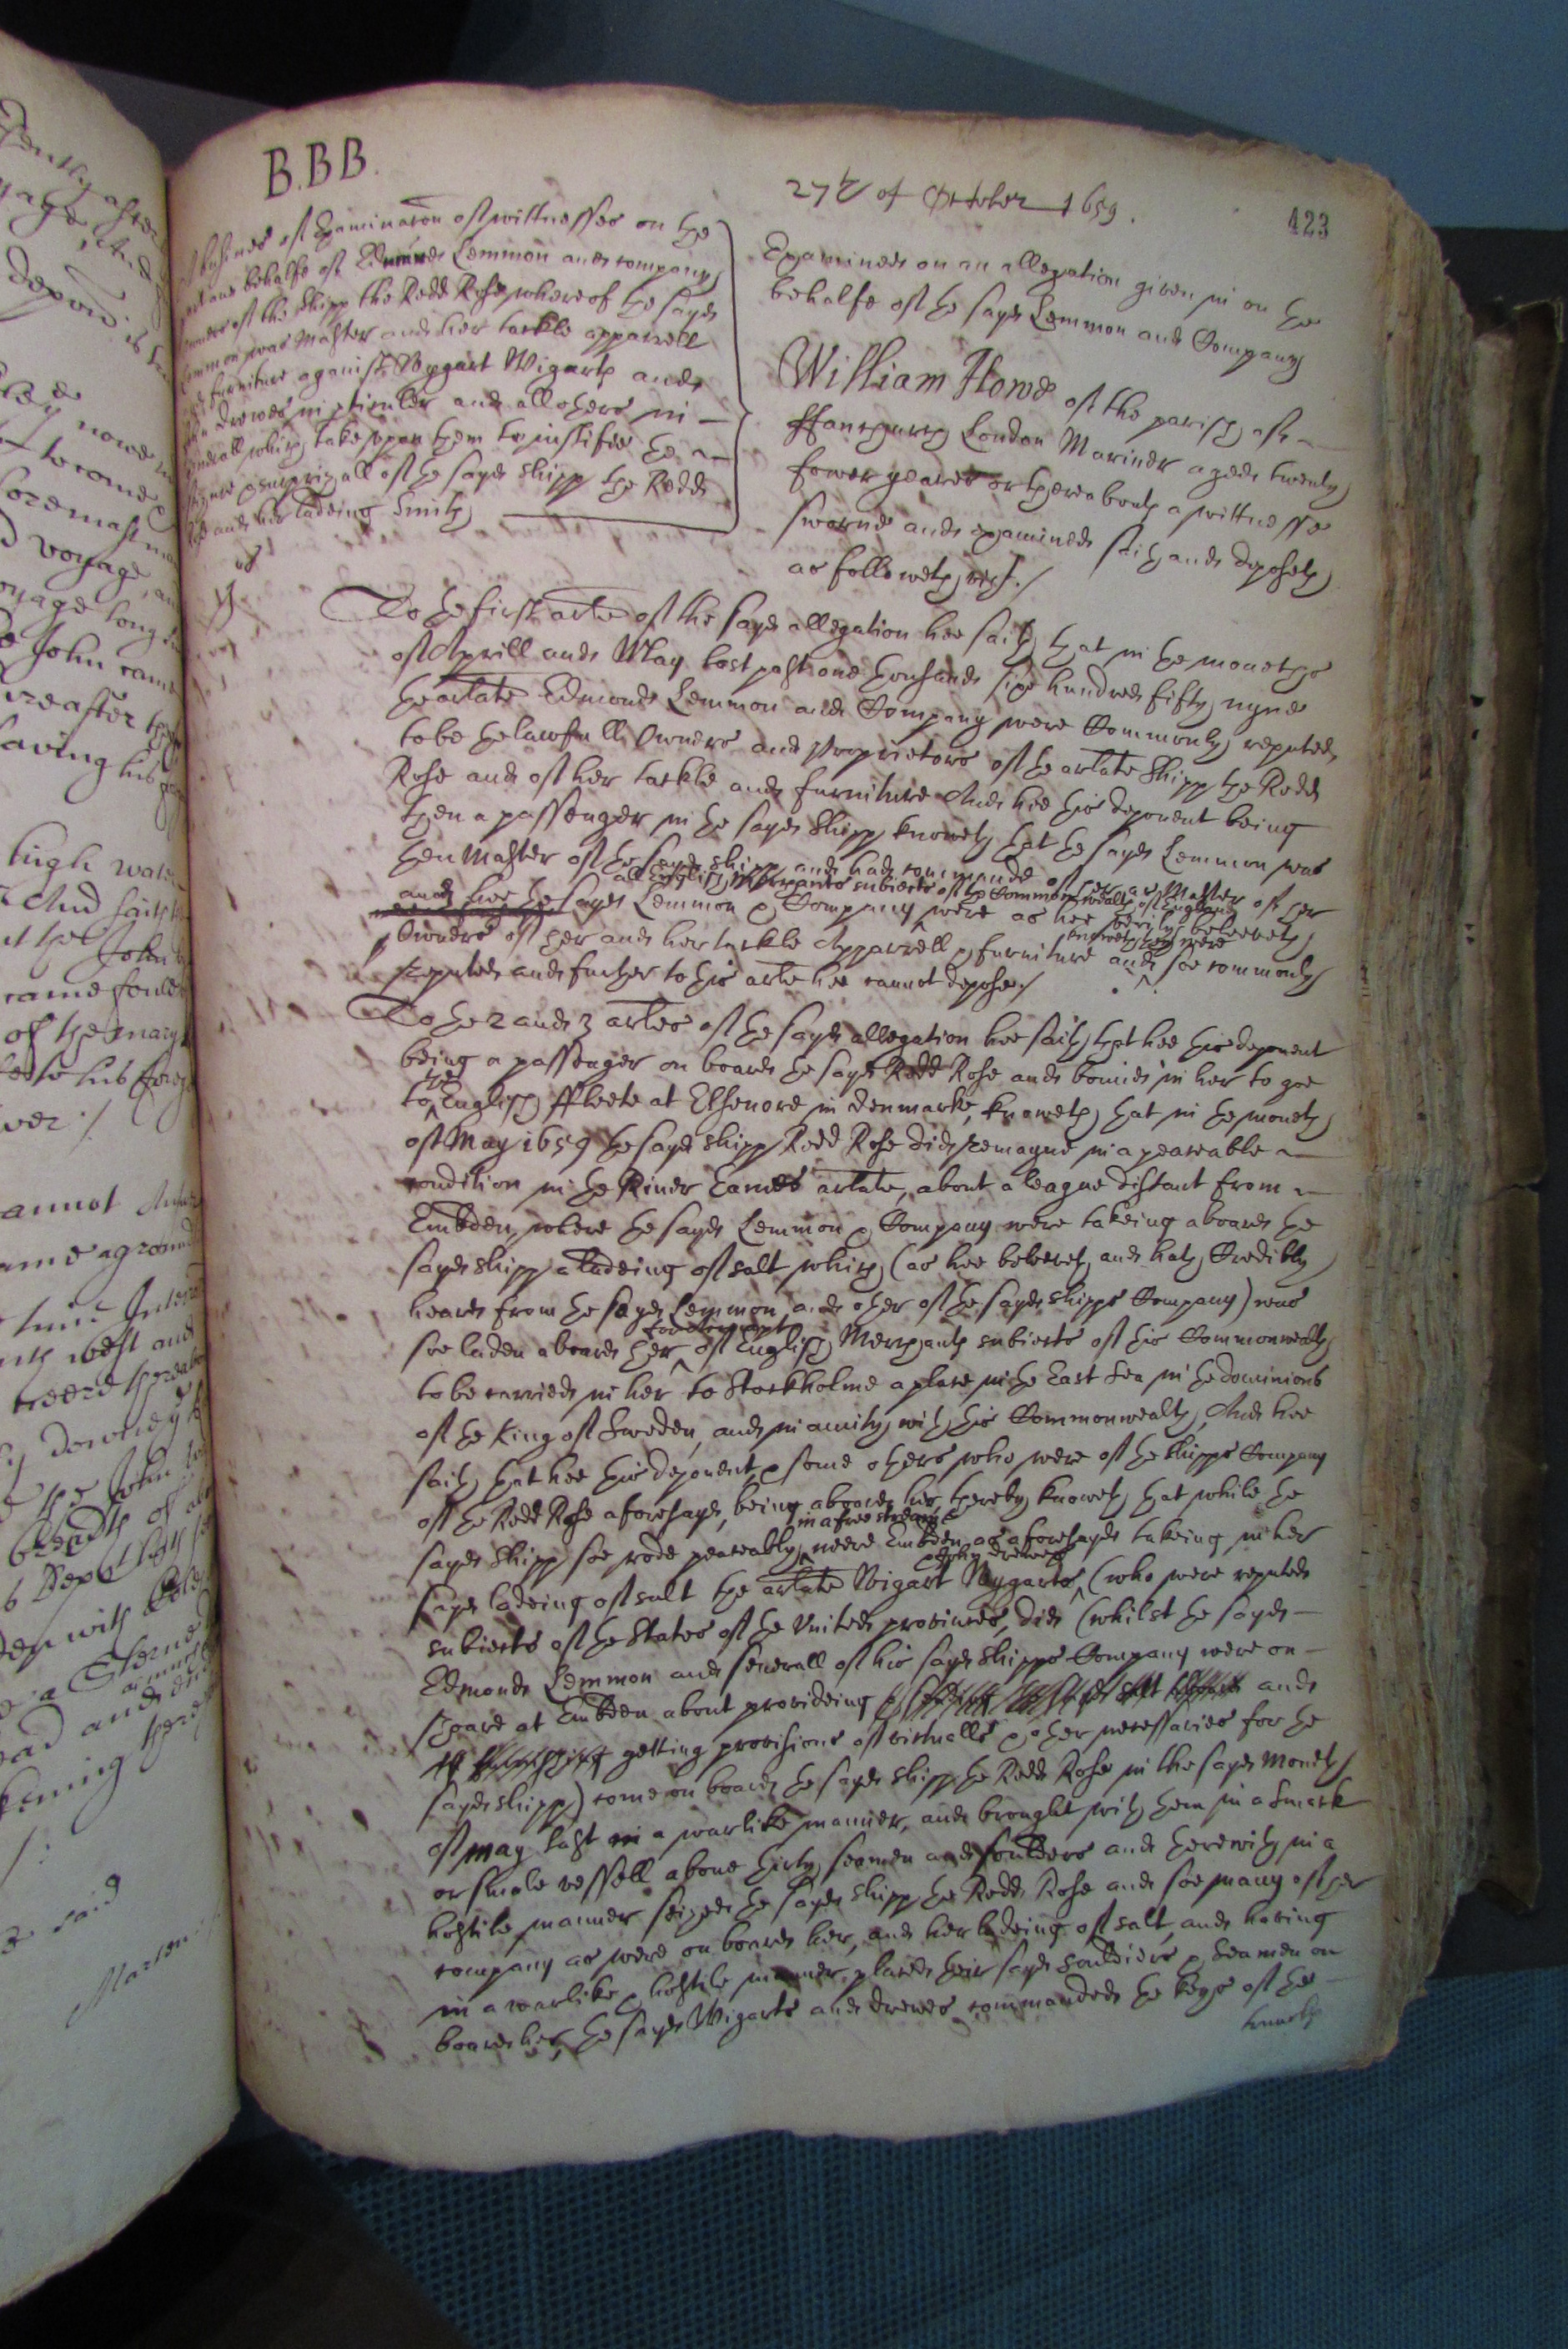 B.B.B.
27th of October 1659.
423
busines of Examinacon of wittnesses on the
behalfe of Edmund Lemmon and company
owners of the shipp the Redd Rose whereof the sayd
Lemmon was Master and her tackle apparrell
and furniture against Wygart Wigarts and
Drewes in perticuler and all others in
generall which take uppon them to justifie the
seizure & surprizall of the sayd shipp the Redd
Rose and her ladeing Smith
Examined on an allegation given in on the
behalfe of the sayd Lemmon and Company
William Howe of the parish of
ffanchurch London Mariner aged twenty
fower yeares or thereabouts a wittnesse
sworne and examined saith and deposeth
as followeth vizt./
To the first arte of the sayd allegation hee saith that in the moneths
of Aprill and May last past one thousand six hundred fifty nyne
the arlate Edmond Lemmon and Company were Commonly reputed
to be the lawfull Owners and Proprietors of the arlate shipp the Redd
Rose and of her tackle and furniture And hee this deponent being
then a passenger in the sayd shipp knoweth that the sayd Lemmon was
then Master of the sayd shipp and had commande of her as Master of her
all English subiects of the Commonwealth of England
and hee the sayd Lemmon & Company were as hee verily beleeveth
knoweth they were
Owners of her and her tackle Apparrell & furniture and soe commonly
reputed and further to this arte hee cannot depose./
To the 2 and 3 artes of the sayd allegation hee saith that hee this deponent
being a passenger on board the sayd Redd Rose and bound in her to goe
the
to English ffleete at Elsenore in Denmarke, knoweth that in the moneth
of May 1659 the sayd shipp Redd Rose did remayne in a peaceable
condition in the River Eames arlate, about a league distant from
Embden, where the sayd Lemmon & Company were takeing aboard the
sayd shipp a ladeing of salt which (as hee beleeveth and hath Credibly
heard from the sayd Lemmon and other of the sayd shipps Company) was
for Accompt
soe laden aboard her of English Merchants subiects of this Commonwealth
to be carried in her to Stockholme a place in the East Sea in the dominions
of the King of Sweden, and in amity with this Commonwealth, And hee
saith that hee this deponent & some others who were of the shipps Company
of the Redd Rose aforesayd, being aboard her, thereby knoweth that while the
in a free streame
sayd shipp soe rode peaceably neere Embden as aforesayd takeing in her
& John Drewes
sayd ladeing of salt the arlate Wigart Wygarts (who were reputed
subiects of the States of the United provinces, did (whilst the sayd
Edmond Lemmon and severall of his sayd shipps Company were on
shoare at Embden about provideing and
getting provisions of victualls & other necessaries for the
sayd shipp) come on board the sayd shipp the Redd Rose in the sayd moneth
of May last in a warlike manner, and brought with them in a smack
or smale vessell above thirty seamen and souldiers and therewith in a
hostile manner seized the sayd shipp the Redd Rose and soe many of her
company as were on board her, and her ladeing of salt, and having
in a warlike & hostile manner placed their sayd souldiers & seamen on
board her, the sayd Wigarts and Drewes commanded the keys of the